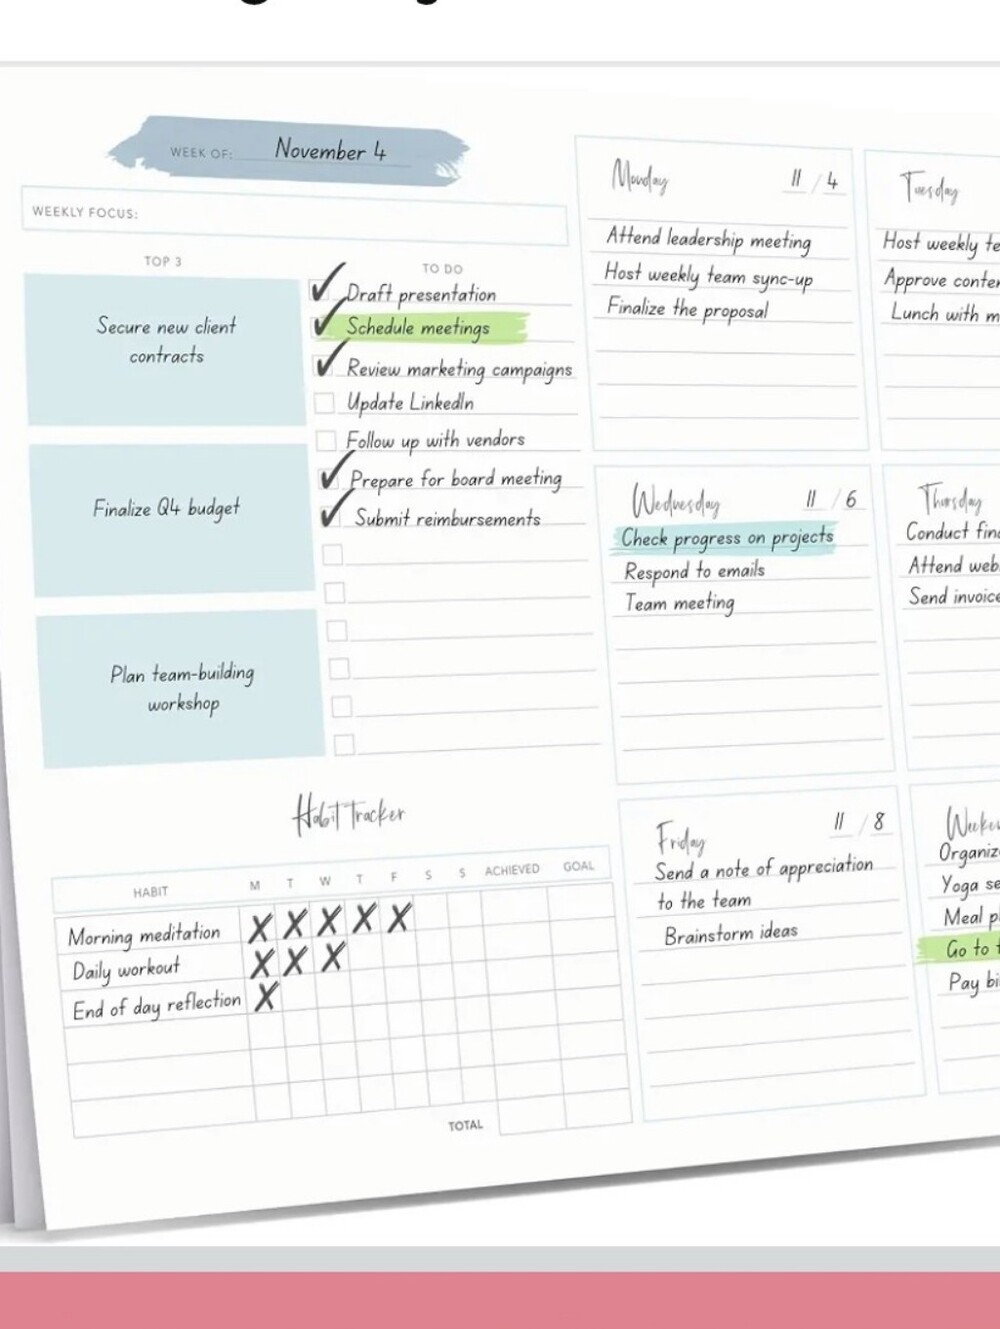 WEEK OF: November 4
WEEKLY FOCUS:
TOP 3
Secure new client
contracts
Finalize Q4 budget
Plan team-building
workshop
TO DO
Draft presentation
Schedule meetings
Review marketing campaigns
Update LinkedIn
Follow up with vendors
Prepare for board meeting
Submit reimbursements
Habit Tracker
HABIT M T W T F S S ACHIEVED GOAL
Morning meditation X X X X X
Daily workout X X X
End of day reflection X
TOTAL
Monday 11 / 4
Attend leadership meeting
Host weekly team sync-up
Finalize the proposal
Tuesday
Host weekly
Approve
Lunch with
Wednesday 11 / 6
Check progress on projects
Respond to emails
Team meeting
Thursday
Conduct
Attend
Send
Friday 11 / 8
Send a note of appreciation
to the team
Brainstorm ideas
Yoga
Meal
Go to
Pay